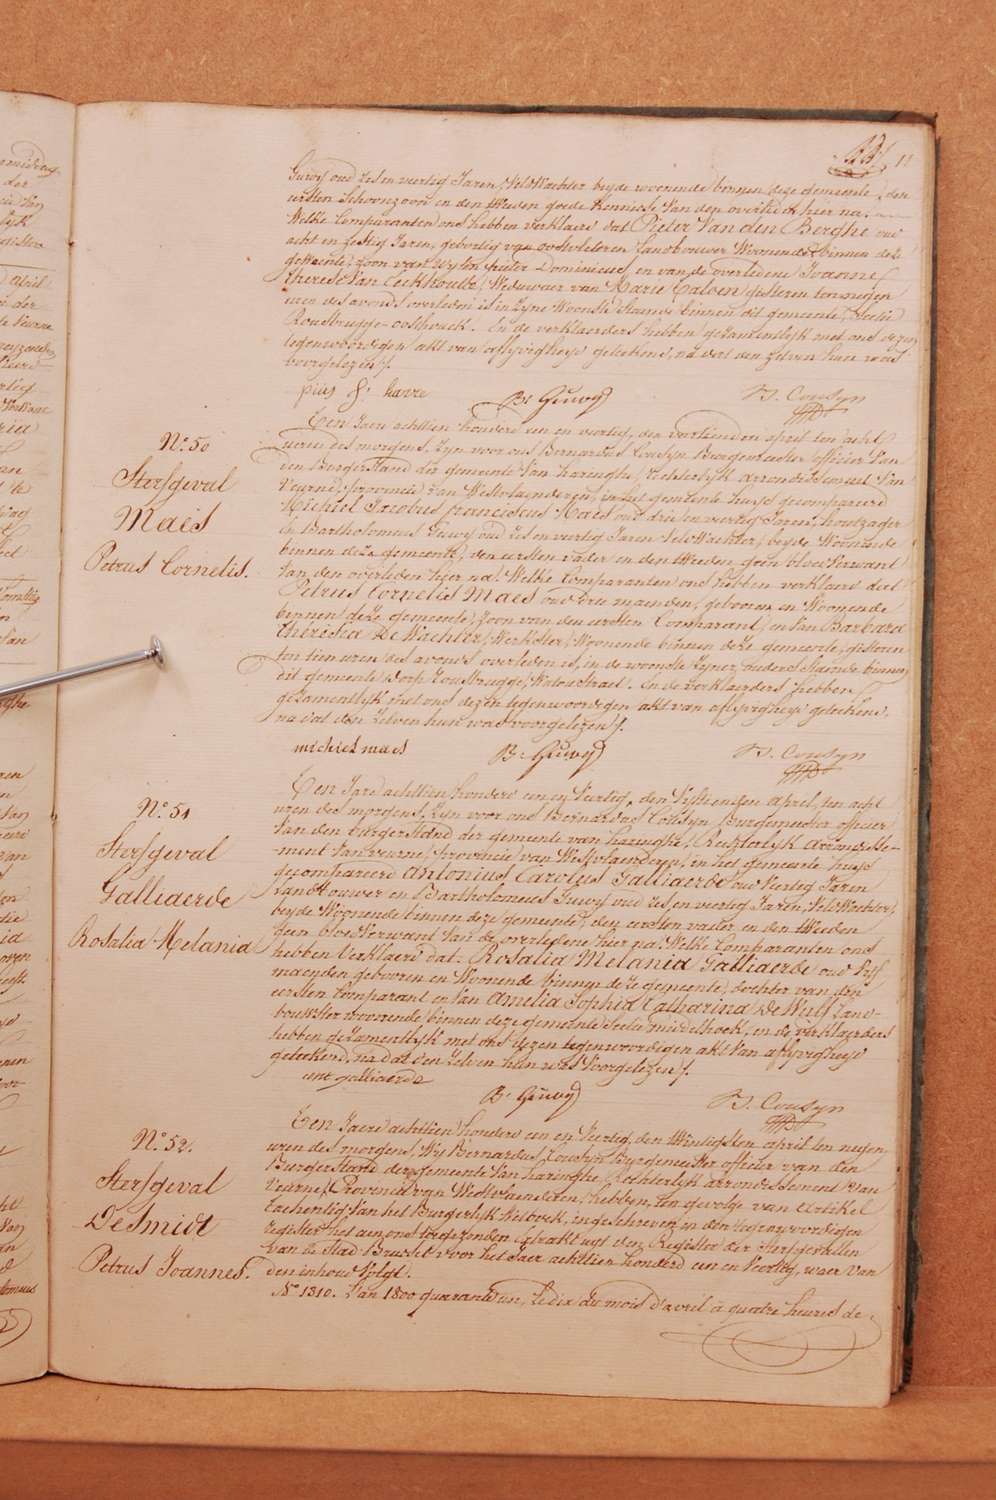 11
Guwÿ oud zes en veertig Jaren, VeldWachter beyde woonende binnen deze gemeente, den
eersten Schoonzoon en den tweeden goede kennisse Van den overleden hier na.
Welke Comparanten ons hebben verklaerd dat Pieter Van den Berghe oud
acht en zestig Jaren, gebortig van oostvleteren Landbouwer Woonende binnen deze
gemeente, zoon van wylen pieter Dominicus, en van de overledene Joanne
therese Van Eeckhoutte, Weduwaer van Marie Caloen gisteren ten negen
uren des avonds overleden is in zyne Woonste staende binnen dit gemeente, Sectie
Rousbrugge-oosthoeck. En de verklaerders hebben gezamentlyk met ons dezen
tegenwoordigen akt van aflyvigheyd geteekend, na dat den zelven hun was
voorgelezen /.
pius F: havre B: Guwÿ B. Cousyn
N.o 50
Sterfgeval
Maes
Petrus Cornelis.
Een Jaer achttien honderd een en veertig, den veertienden april ten acht
uren des morgens, Zyn voor ons Bernardus Cousyn Burgemeester officier Van
den Burgerstand der gemeente Van haringhe, rechterlyk arrondissement Van
Veurne, provincie Van Westvlaenderen, in het gemeente huys gecompareerd
Michiel Jacobus franciscus Maes oud drie en veertig Jaren, houtzager
En Bartholomeus Guwÿ oud zes en veertig Jaren VeldWachter, beyde Woonende
binnen deze gemeente, den eersten vader en den tweeden geen bloedverwant
Van den overleden hier na. Welke Comparanten ons hebben verklaerd dat
Petrus Cornelis Maes oud drie maenden, gebooren en Woonende
binnen deze gemeente, Zoon van den eersten Comparant, en Van Barbara
Theresia De Wachter, Werkster, Woonende binnen deze gemeente, gisteren
ten tien uren des avonds overleden is, in de woonste zyner ouders staende binnen
dit gemeente dorp Rousbrugge, Watoustraet. En de verklaerders hebben
gezamentlyk met ons dezen tegenwoordigen akt van aflyvigheyd geteekend,
na dat den Zelven hun was voorgelezen /.
michiel maes B: Guwÿ B. Cousyn
N.o 51
Sterfgeval
Galliaerde
Rosalia Melania
Een Jare achttien honderd een en Veertig, den Vyftienden april, ten acht
uren des morgens, Zyn voor ons Bernardus Cousyn Burgemeester officier
Van den burgerstand der gemeente van haringhe, Rechterlyk arrondisse-
-ment Van veurne, provincie van Westvlaenderen, in het gemeente huys
gecompareerd Antonius Carolus Galliaerde oud Veertig Jaren
Landbouwer en Bartholomeus Guwÿ oud zes en veertig Jaren, VeldWachter,
beyde Woonende binnen deze gemeente, den eersten vader en den tweeden
geen bloedVerwant Van de overledene hier na. Welke Comparanten ons
hebben Verklaerd dat: Rosalia Melania Galliaerde oud Vyf
maenden gebooren en Woonende binnen deze gemeente, dochter van den
eersten Comparant en Van Amelia Sophia Catharina De Wulf Land-
bouwster woonende binnen deze gemeente Sectie middelhoek, en de verklaerders
hebben gezamentlyk met ons dezen tegenwoordigen akt Van aflyvigheyd
geteekend, na dat den Zelven hun was Voorgelezen /.
ant galliaerde
B: Guwÿ B. Cousyn
N.o 52.
Sterfgeval
DeSmidt
Petrus Joannes.
Een Jaere achttien honderd een en Veertig, den twintigsten april ten negen
uren des morgens, Wy Bernardus Cousyn Burgemeester officier van den
Burgerstand der gemeente Van haringhe, rechterlyk arrondissement Van
Veurne, Provincie van Westvlaenderen, hebben, ten gevolge van artikel
tachentig Van het Burgerlyk Wetboek, ingeschreven in den tegenwoordigen
register het aen ons toegezonden Extrakt uyt den Register der sterfgevallen
van de Stad Brussel voor het Jaer achttien honderd een en Veertig, waer van
den inhoud Volgt.
N.o 1310. L'an 1800 quarante un, le dix du mois d'avril à quatre heures de